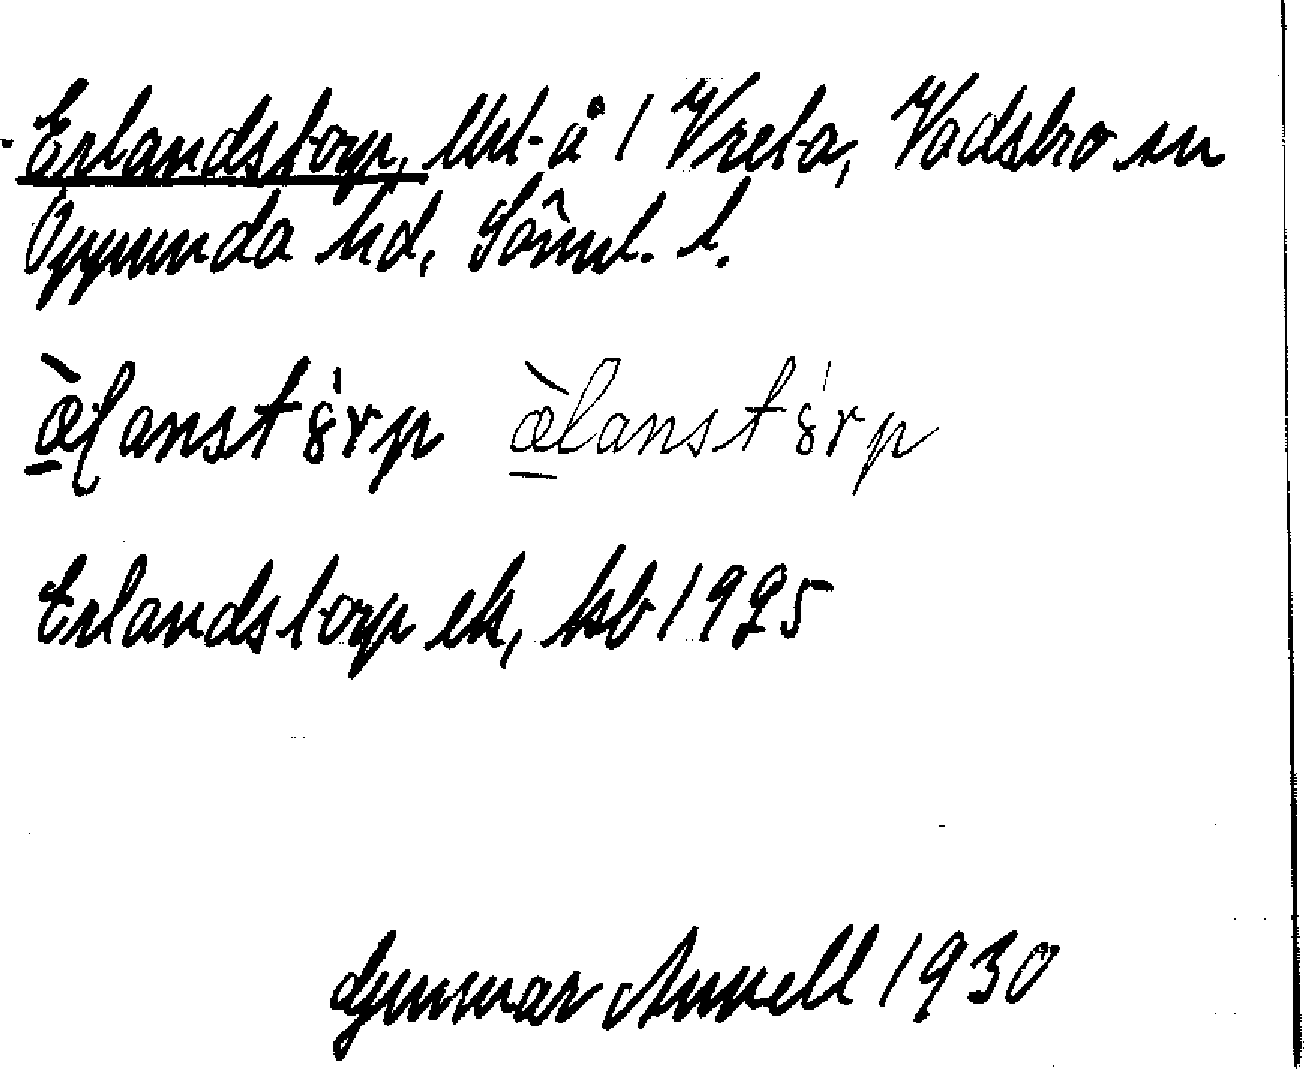 Erlandstorp, lht å 1 Vreta, Vadsbro sn
Oppunda hd, Söml. l.
æ̀lanstȣrp æ̀lanstȣrp
Erlandstorp ek, kb 1925
Gunnar Amnell 1930